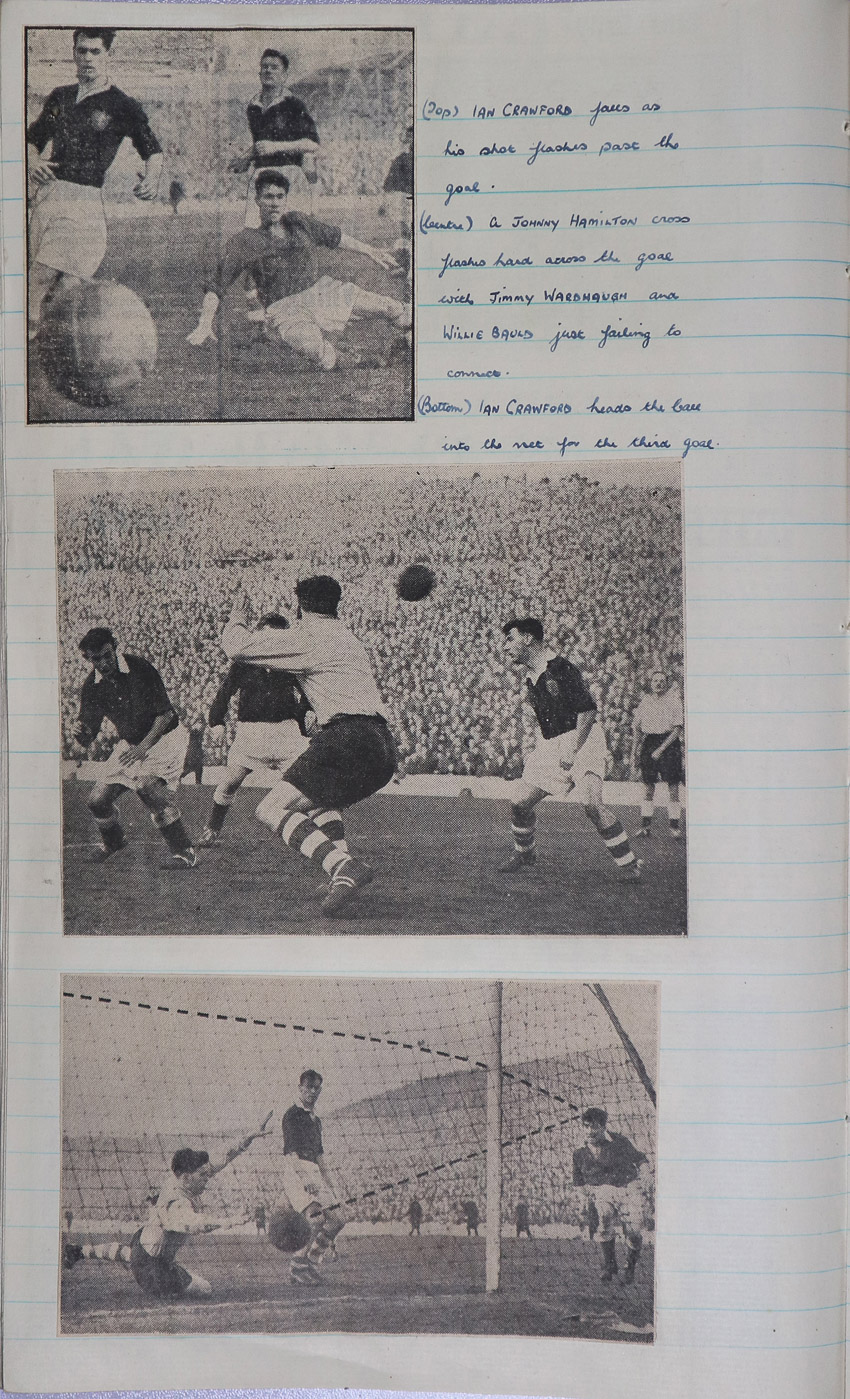 (Top) IAN CRAWFORD falls as
his shot flashes past the
goal.
(Centre) A JOHNNY HAMILTON cross
flashes hard across the goal
with JIMMY WARDHAUGH and
WILLIE BAULD just failing to
connect.
(Bottom) IAN CRAWFORD heads the ball
into the net for the third goal.